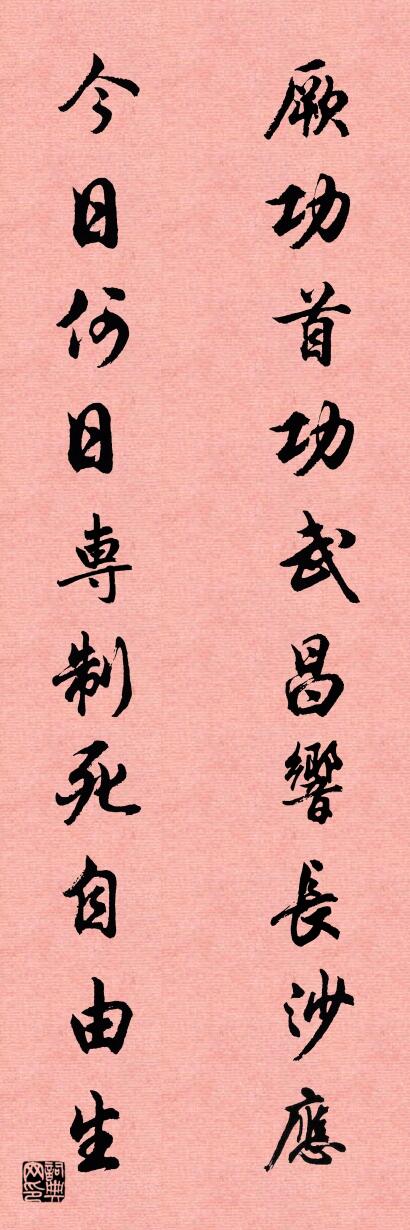 厥功首功武昌響長沙應
今日何日專制死自由生
詞典网印